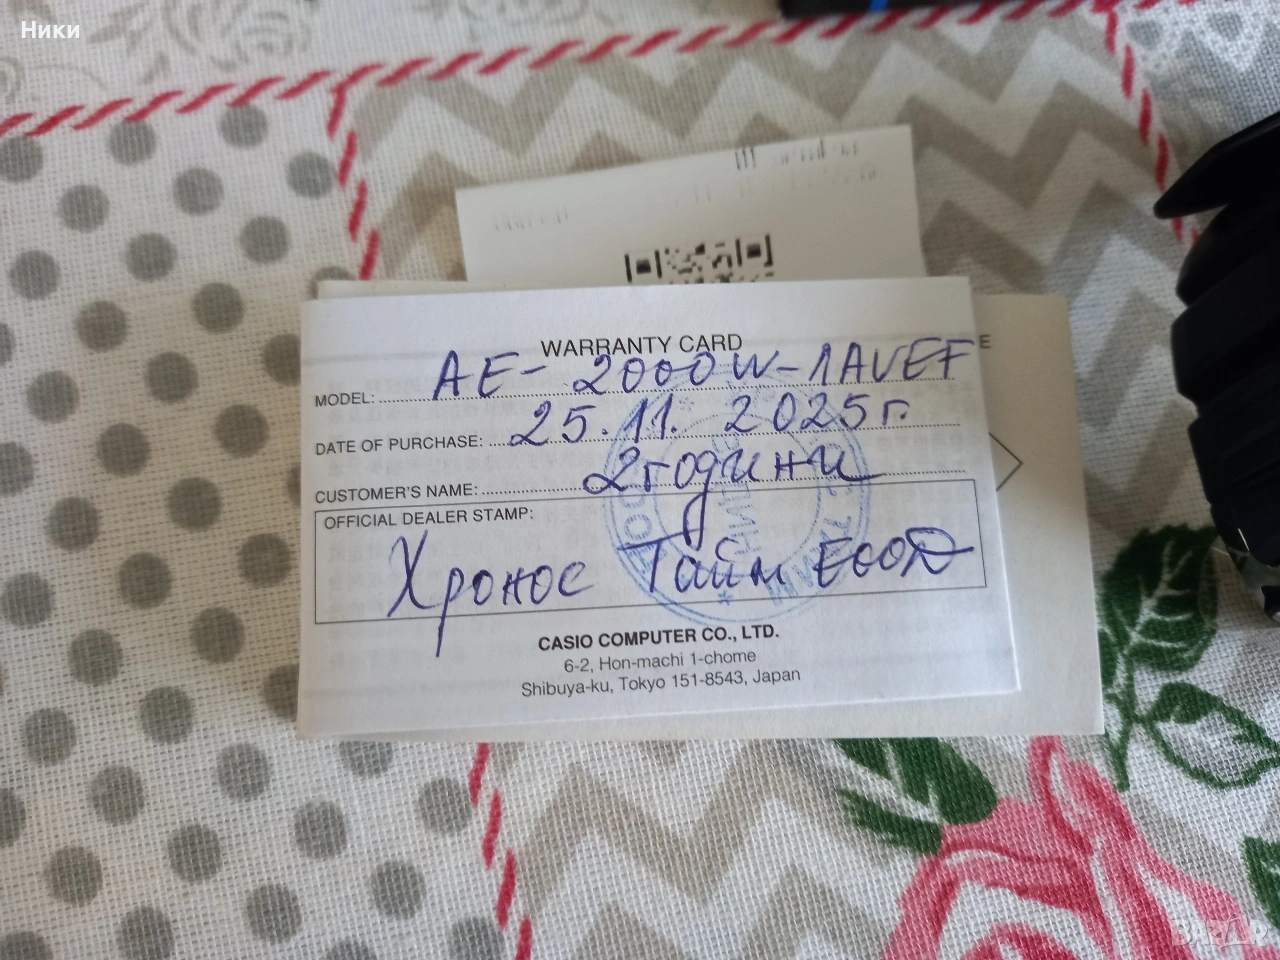 Ники
WARRANTY CARD
MODEL: AE-2000W-1AVEF
DATE OF PURCHASE: 25.11.2025г.
CUSTOMER'S NAME: 2години
OFFICIAL DEALER STAMP:
Хронос Тайм ЕООД
CASIO COMPUTER CO., LTD.
6-2, Hon-machi 1-chome
Shibuya-ku, Tokyo 151-8543, Japan
E
BAZAR